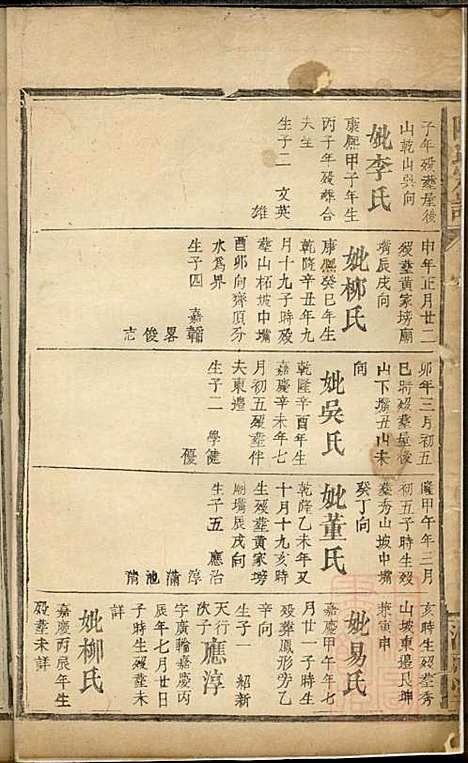 子年歿塟屋後
山乾山巽向
妣李氏
康熙甲子年生
丙子年歿塟合
夫生
生子二 文英
雄
申年正月廿二
歿塟黃家塝廟
嘴辰戌向
妣柳氏
康熙癸巳年生
乾隆辛丑年九
月十九子時歿
塟山柘坡中嘴
酉卯向齊頂分
水為界
生子四 嘉
畧
俊
志
卯年三月初五
巳時歿塟屋後
山下嘴丑山未
向
妣吳氏
乾隆辛酉年生
嘉慶辛未年七
月初五歿塟伴
夫東邊
生子二 學健
優
隆甲午年三月
初五子時生歿
塟秀山坡中嘴
癸丁向
妣董氏
乾隆乙未年又
十月十九亥時
生歿塟黃家塝
廟嘴辰戌向
生子五 應治
淳
池
亥時生歿塟秀
山坡東邊艮坤
兼寅申
妣易氏
嘉慶甲午年七
月廿一子時生
歿葬鳳形旁乙
辛向
生子一 紹新
天行
次子應淳
字廣輪嘉慶丙
辰年七月廿日
子時生歿塟未
詳
妣柳氏
嘉慶丙辰年生
歿塟未詳